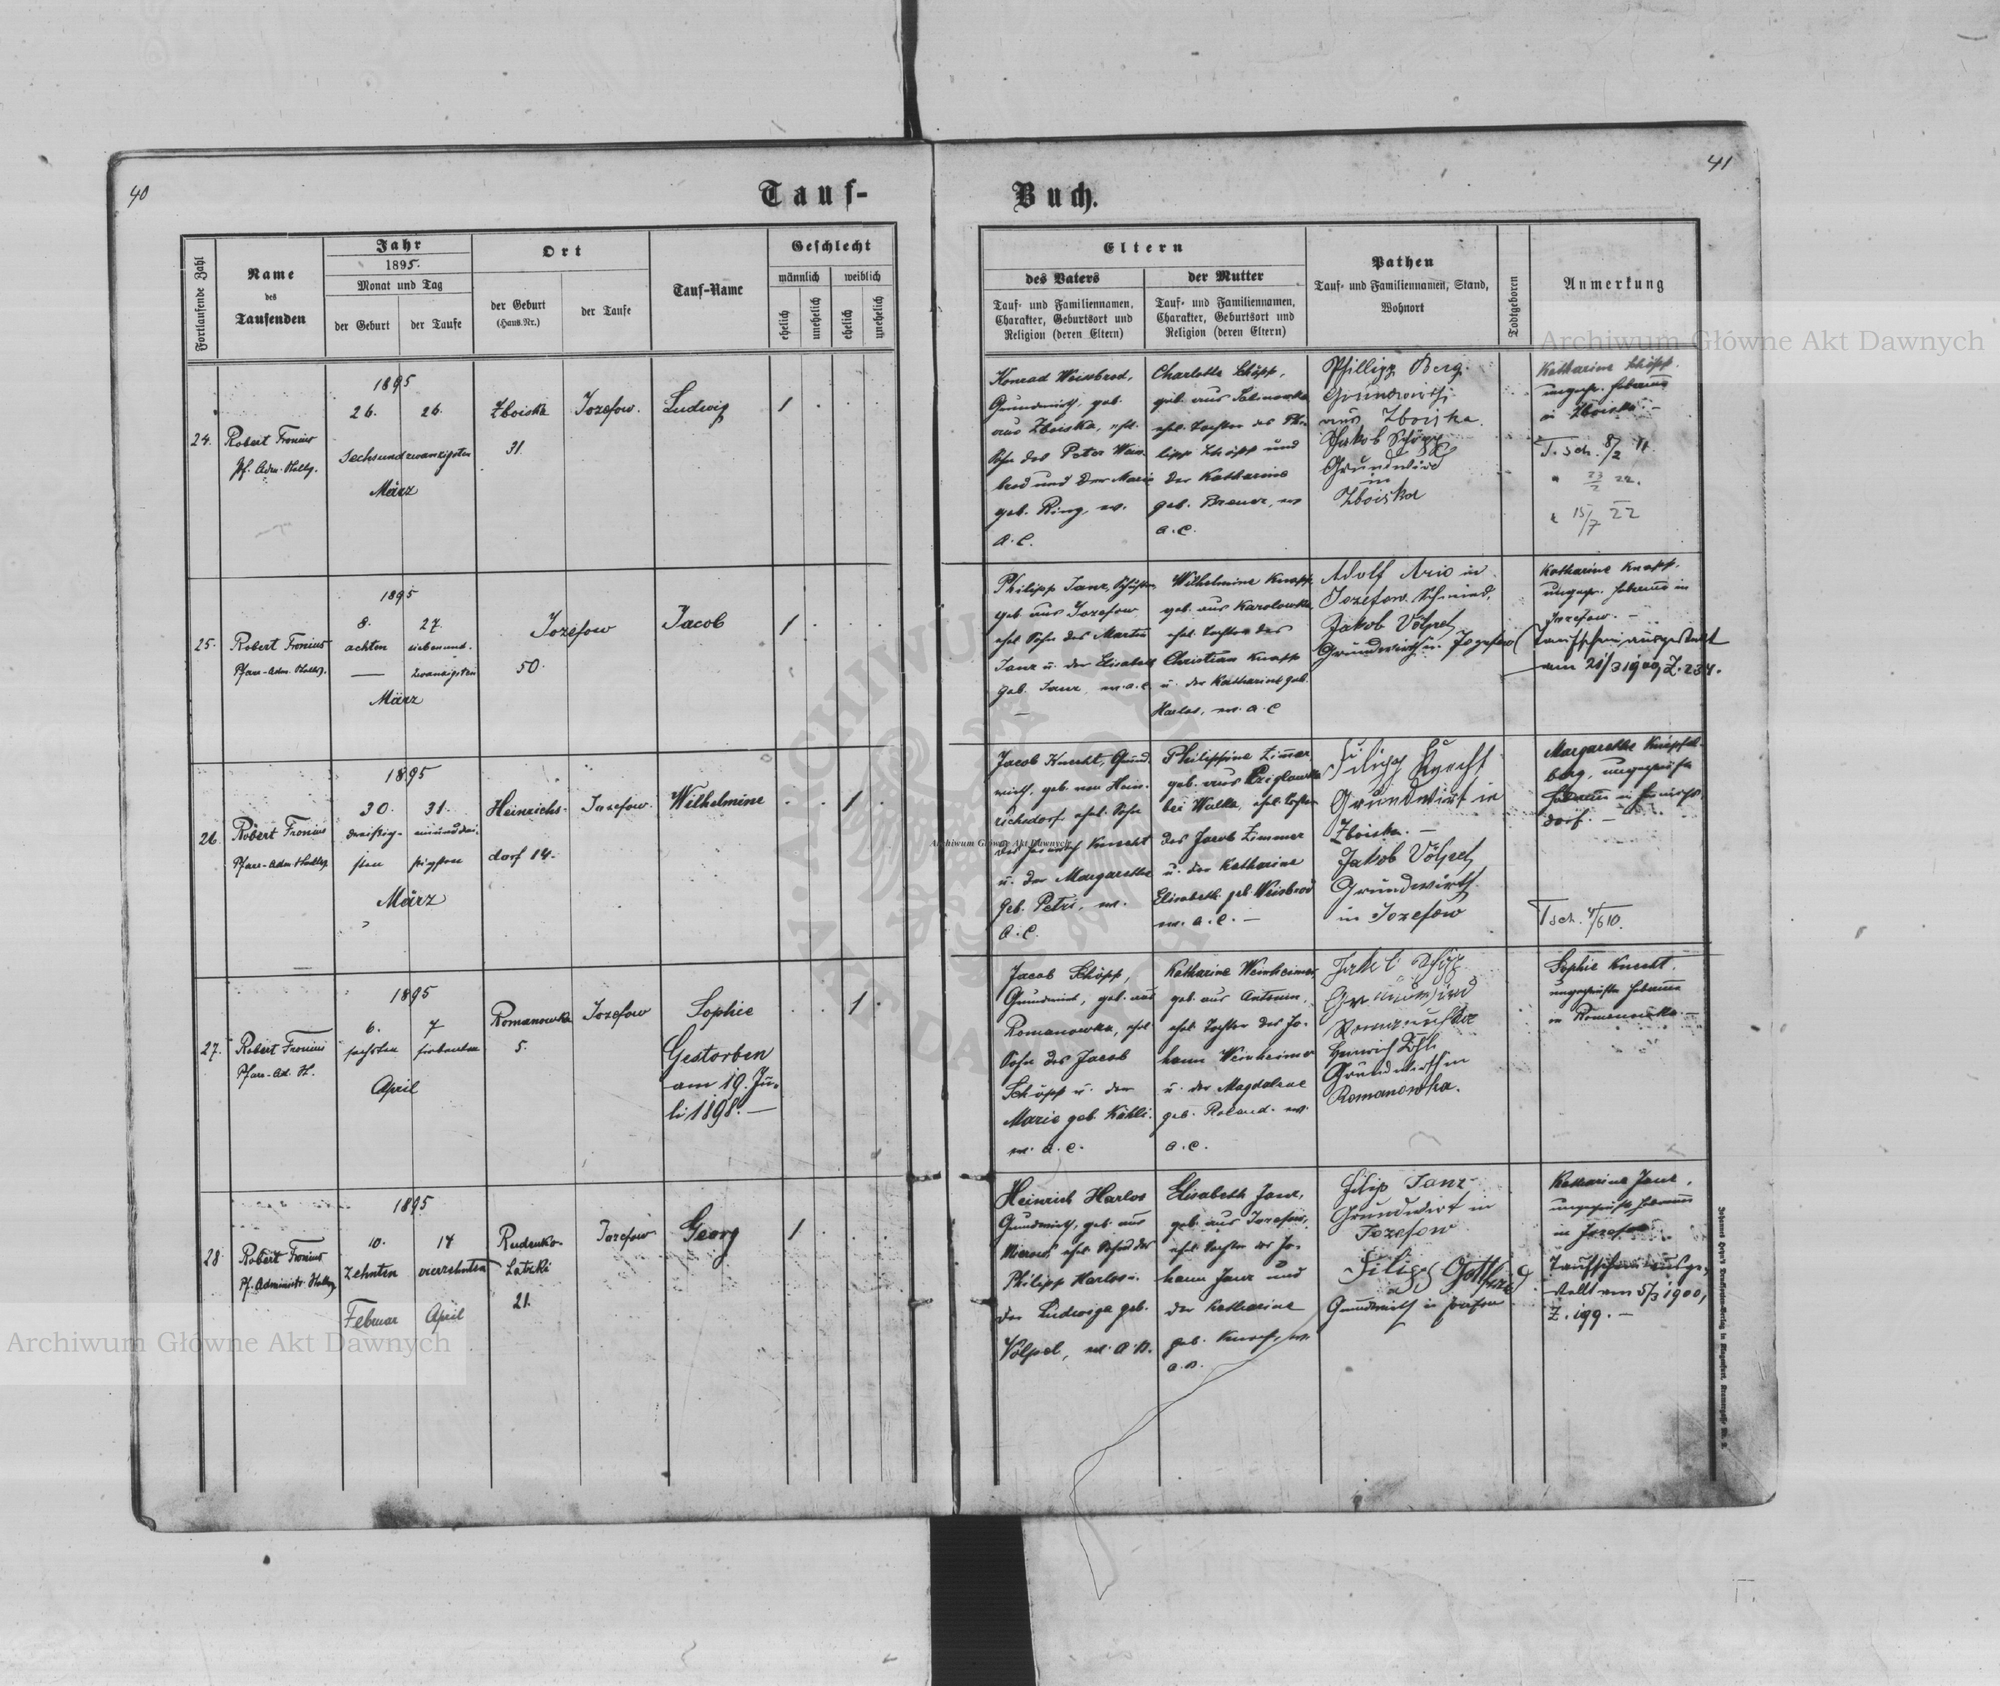 40
41
Tauf-
Buch.
Fortlaufende Zahl
Name
des
Taufenden
Jahr
1895.
Monat und Tag
der Geburt
der Taufe
Ort
der Geburt
(Haus-Nr.)
der Taufe
Tauf-Name
Geschlecht
männlich
weiblich
ehelich
unehelich
ehelich
unehelich
Eltern
des Vaters
Tauf- und Familiennamen,
Charakter, Geburtsort und
Religion (deren Eltern)
der Mutter
Tauf- und Familiennamen,
Charakter, Geburtsort und
Religion (deren Eltern)
Pathen
Tauf- und Familiennamen, Stand,
Wohnort
Todtgeboren
Anmerkung
24.
Robert Fronius
Pf. Adm.
1895
26. 26.
Sechsundzwanzigsten
März
Zboiska
31.
Jozefow.
Ludwig
1
Konrad Weissbrod,
Grundwirth, geb.
aus Zboiska, ehl.
Sohn des Peter Weis
brod und der Marie
geb. Ring, ev.
A. C.
Charlotte Schöpp,
geb. aus
ehl. Tochter des Phi-
lipp Schöpp und
der Katharina
geb. Brauer, ev
A. C.
Phillipp Berg.
Grundwirth
aus Zboiska.
Jakob Schöpp
Grundwird
in
Zboiska
Katharine Schöpp.
ungepr. Hebamme
in Zboiska. -
T. sch. 8/2 11.
" 23/2 22.
15/7 22
25.
Robert Fronius
Pfarr-Adm.
1895
8. 27.
achten siebenund-
zwanzigsten
März
Jozefow
50.
Jacob
1
Philipp Janz,
geb. aus Jozefow
ehl. Sohn des Martin
Janz u. der Elisabeth
geb. Janz, ev. A. C.
Wilhelmine Knapp
geb. aus Karolowka,
ehl. Tochter des
Christian Knapp
u. der Katharine geb.
Harlos, ev. A. C
Adolf Ario in
Jozefow. Schmied,
Jakob Völpel
Grundwirth in Jozefow
Katharine Knapp.
ungepr. Hebamme in
Jozefow. -
Taufschein ausgestellt
am 21/3 1900, Z. 234.
26.
Robert Fronius
Pfarr-Adm.
1895
30. 31.
dreißig- einunddrei-
sten ßigsten
März
Heinrichs-
dorf 14.
Jozefow.
Wilhelmine
1
Jacob Knecht, Grund
wirth, geb. von Hein-
richsdorf, ehl. Sohn
des Heinrich Knecht
u. der Margarethe
geb. Petri, ev.
A. C.
Philippine Zimmer
geb. aus
bei Walka, ehl. Tochter
des Jacob Zimmer
u. der Katharine
Elisabeth geb. Weisbrod
ev. A. C. -
Filipp Knecht
Grundwirt in
Zboiska. -
Jakob Völpel
Grundwirth.
in Jozefow
Margarethe Knöpfel-
berg, ungeprüfte
Hebamme in Heinrichs-
dorf. -
Tsch. 4/6 10.
27.
Robert Fronius
Pfarr-Ad.
1895
6. 7
sechsten siebenten
April
Romanowka
5.
Jozefow
Sophie
Gestorben
am 19. Ju-
li 1898. -
1
Jacob Schöpp,
Grundwirt, geb. aus
Romanowka, ehl
Sohn des Jacob
Schöpp u. der
Marie geb. Köhli.
ev. A. C.
Katharine Weinheimer
geb. aus Antonin,
ehl. Tochter des Jo-
hann Weinheimer
u. der Magdalene
geb. Roland. ev.
A. C.
Jakob Schöpp
Grundwird
Romanowka
Heinrich
Grundwirth in
Romanowka.
Sophie Knecht,
ungeprüfte Hebamme
in Romanowka -
28
Robert Fronius
Pf. Administr.
1895
10. 14
zehnten vierzehnten
Februar April
Rudenko-
Latzki
21.
Jozefow
Georg
1
Heinrich Harlos
Grundwirth, geb. aus
ehl. Sohn des
Philipp Harlos u.
der Ludwiga geb.
Völpel, ev. A. B.
Elisabeth Janz,
geb. aus Jozefow,
ehl. Tochter des Jo-
hann Janz und
der Katharine
geb. Knecht, ev.
A. B.
Filip Janz
Grundwirt in
Jozefow
Filipp Gottfried
Grundwirth in Jozefow
Katharine Janz,
ungeprüfte Hebamme
in Jozefow
Taufschein ausge-
stellt am 5/3 1900,
Z. 199. -
Archiwum Główne Akt Dawnych
Archiwum Główne Akt Dawnych
Archiwum Główne Akt Dawnych